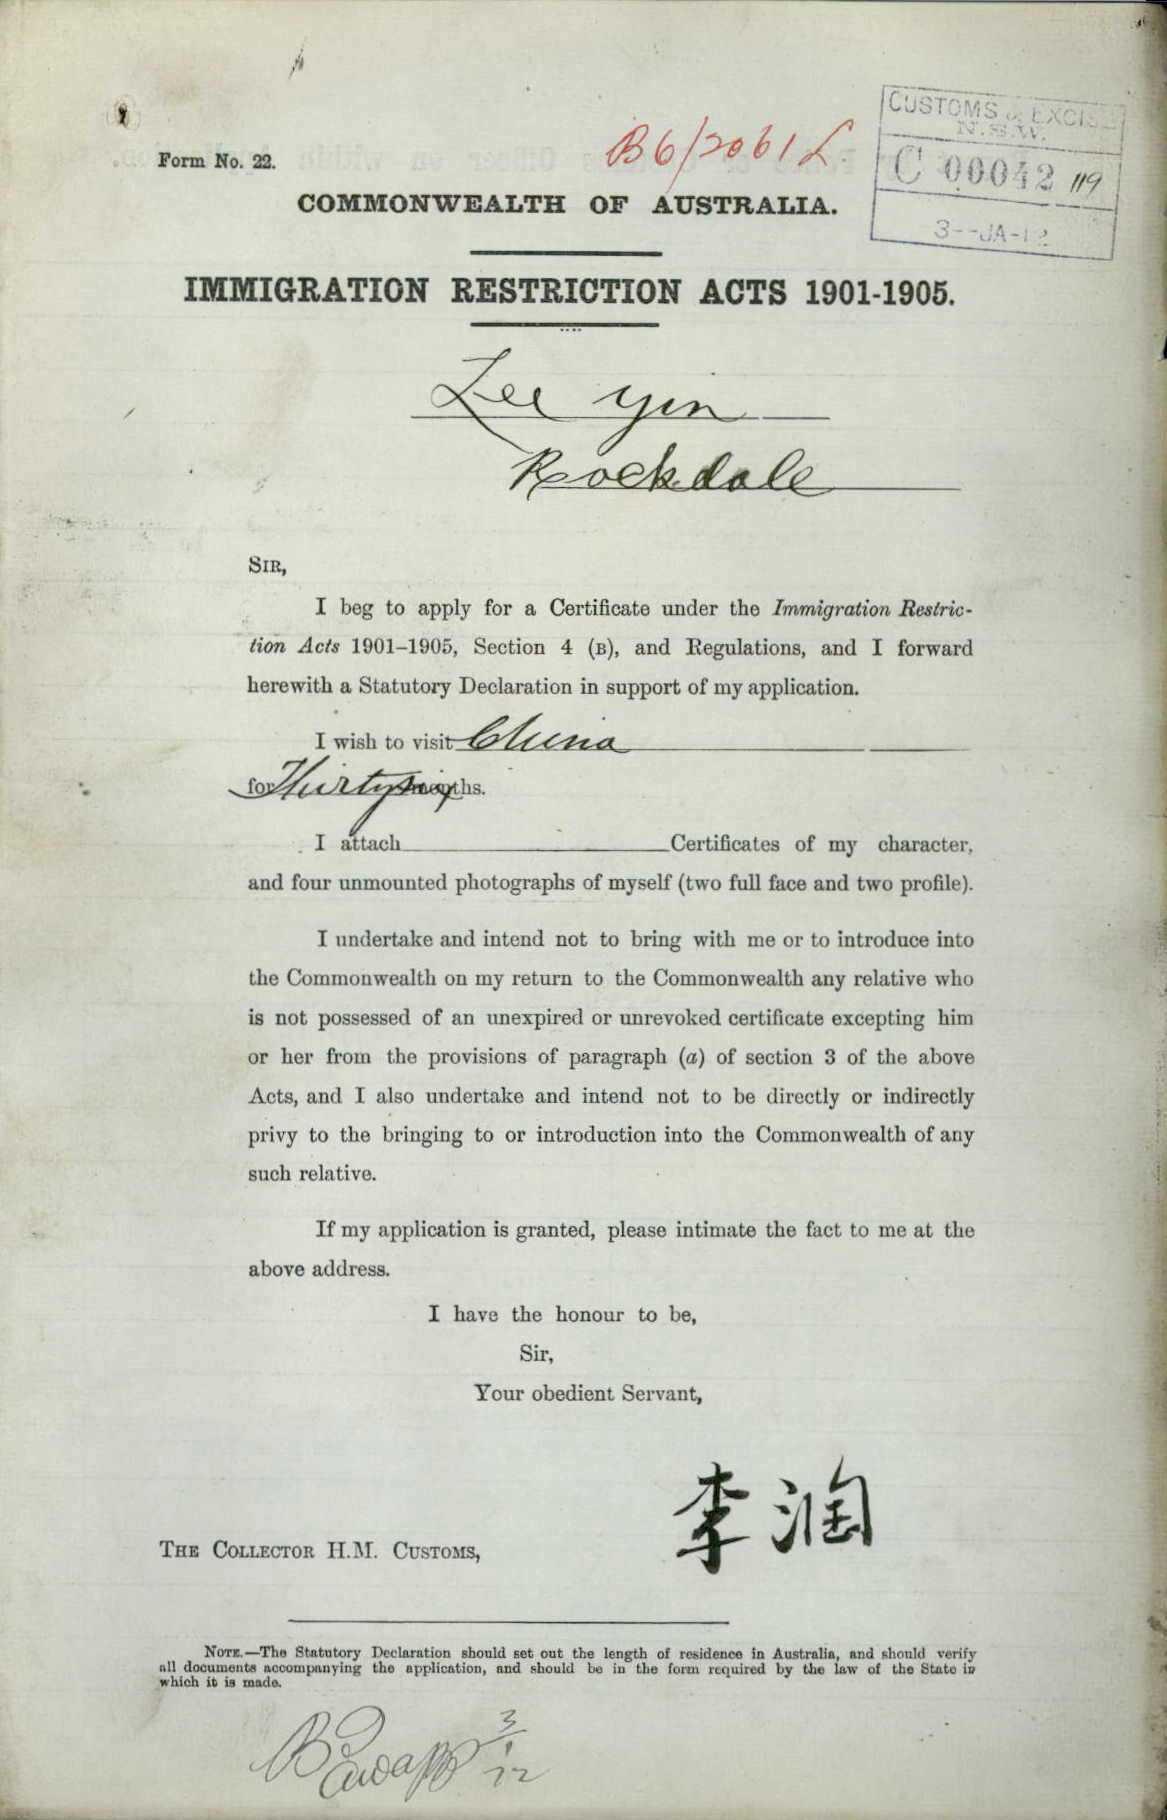 Form No. 22.
B6/2061 L
CUSTOMS & EXCISE
N.S.W.
C 00042 119
3--JA-12
COMMONWEALTH OF AUSTRALIA.
IMMIGRATION RESTRICTION ACTS 1901-1905.
Lee Yin
Rockdale
SIR,
I beg to apply for a Certificate under the Immigration Restric-
tion Acts 1901–1905, Section 4 (B), and Regulations, and I forward
herewith a Statutory Declaration in support of my application.
I wish to visit China
for Thirty six months.
I attach Certificates of my character,
and four unmounted photographs of myself (two full face and two profile).
I undertake and intend not to bring with me or to introduce into
the Commonwealth on my return to the Commonwealth any relative who
is not possessed of an unexpired or unrevoked certificate excepting him
or her from the provisions of paragraph (a) of section 3 of the above
Acts, and I also undertake and intend not to be directly or indirectly
privy to the bringing to or introduction into the Commonwealth of any
such relative.
If my application is granted, please intimate the fact to me at the
above address.
I have the honour to be,
Sir,
Your obedient Servant,
李润
THE COLLECTOR H.M. CUSTOMS,
NOTE.—The Statutory Declaration should set out the length of residence in Australia, and should verify
all documents accompanying the application, and should be in the form required by the law of the State in
which it is made.
3/1/12